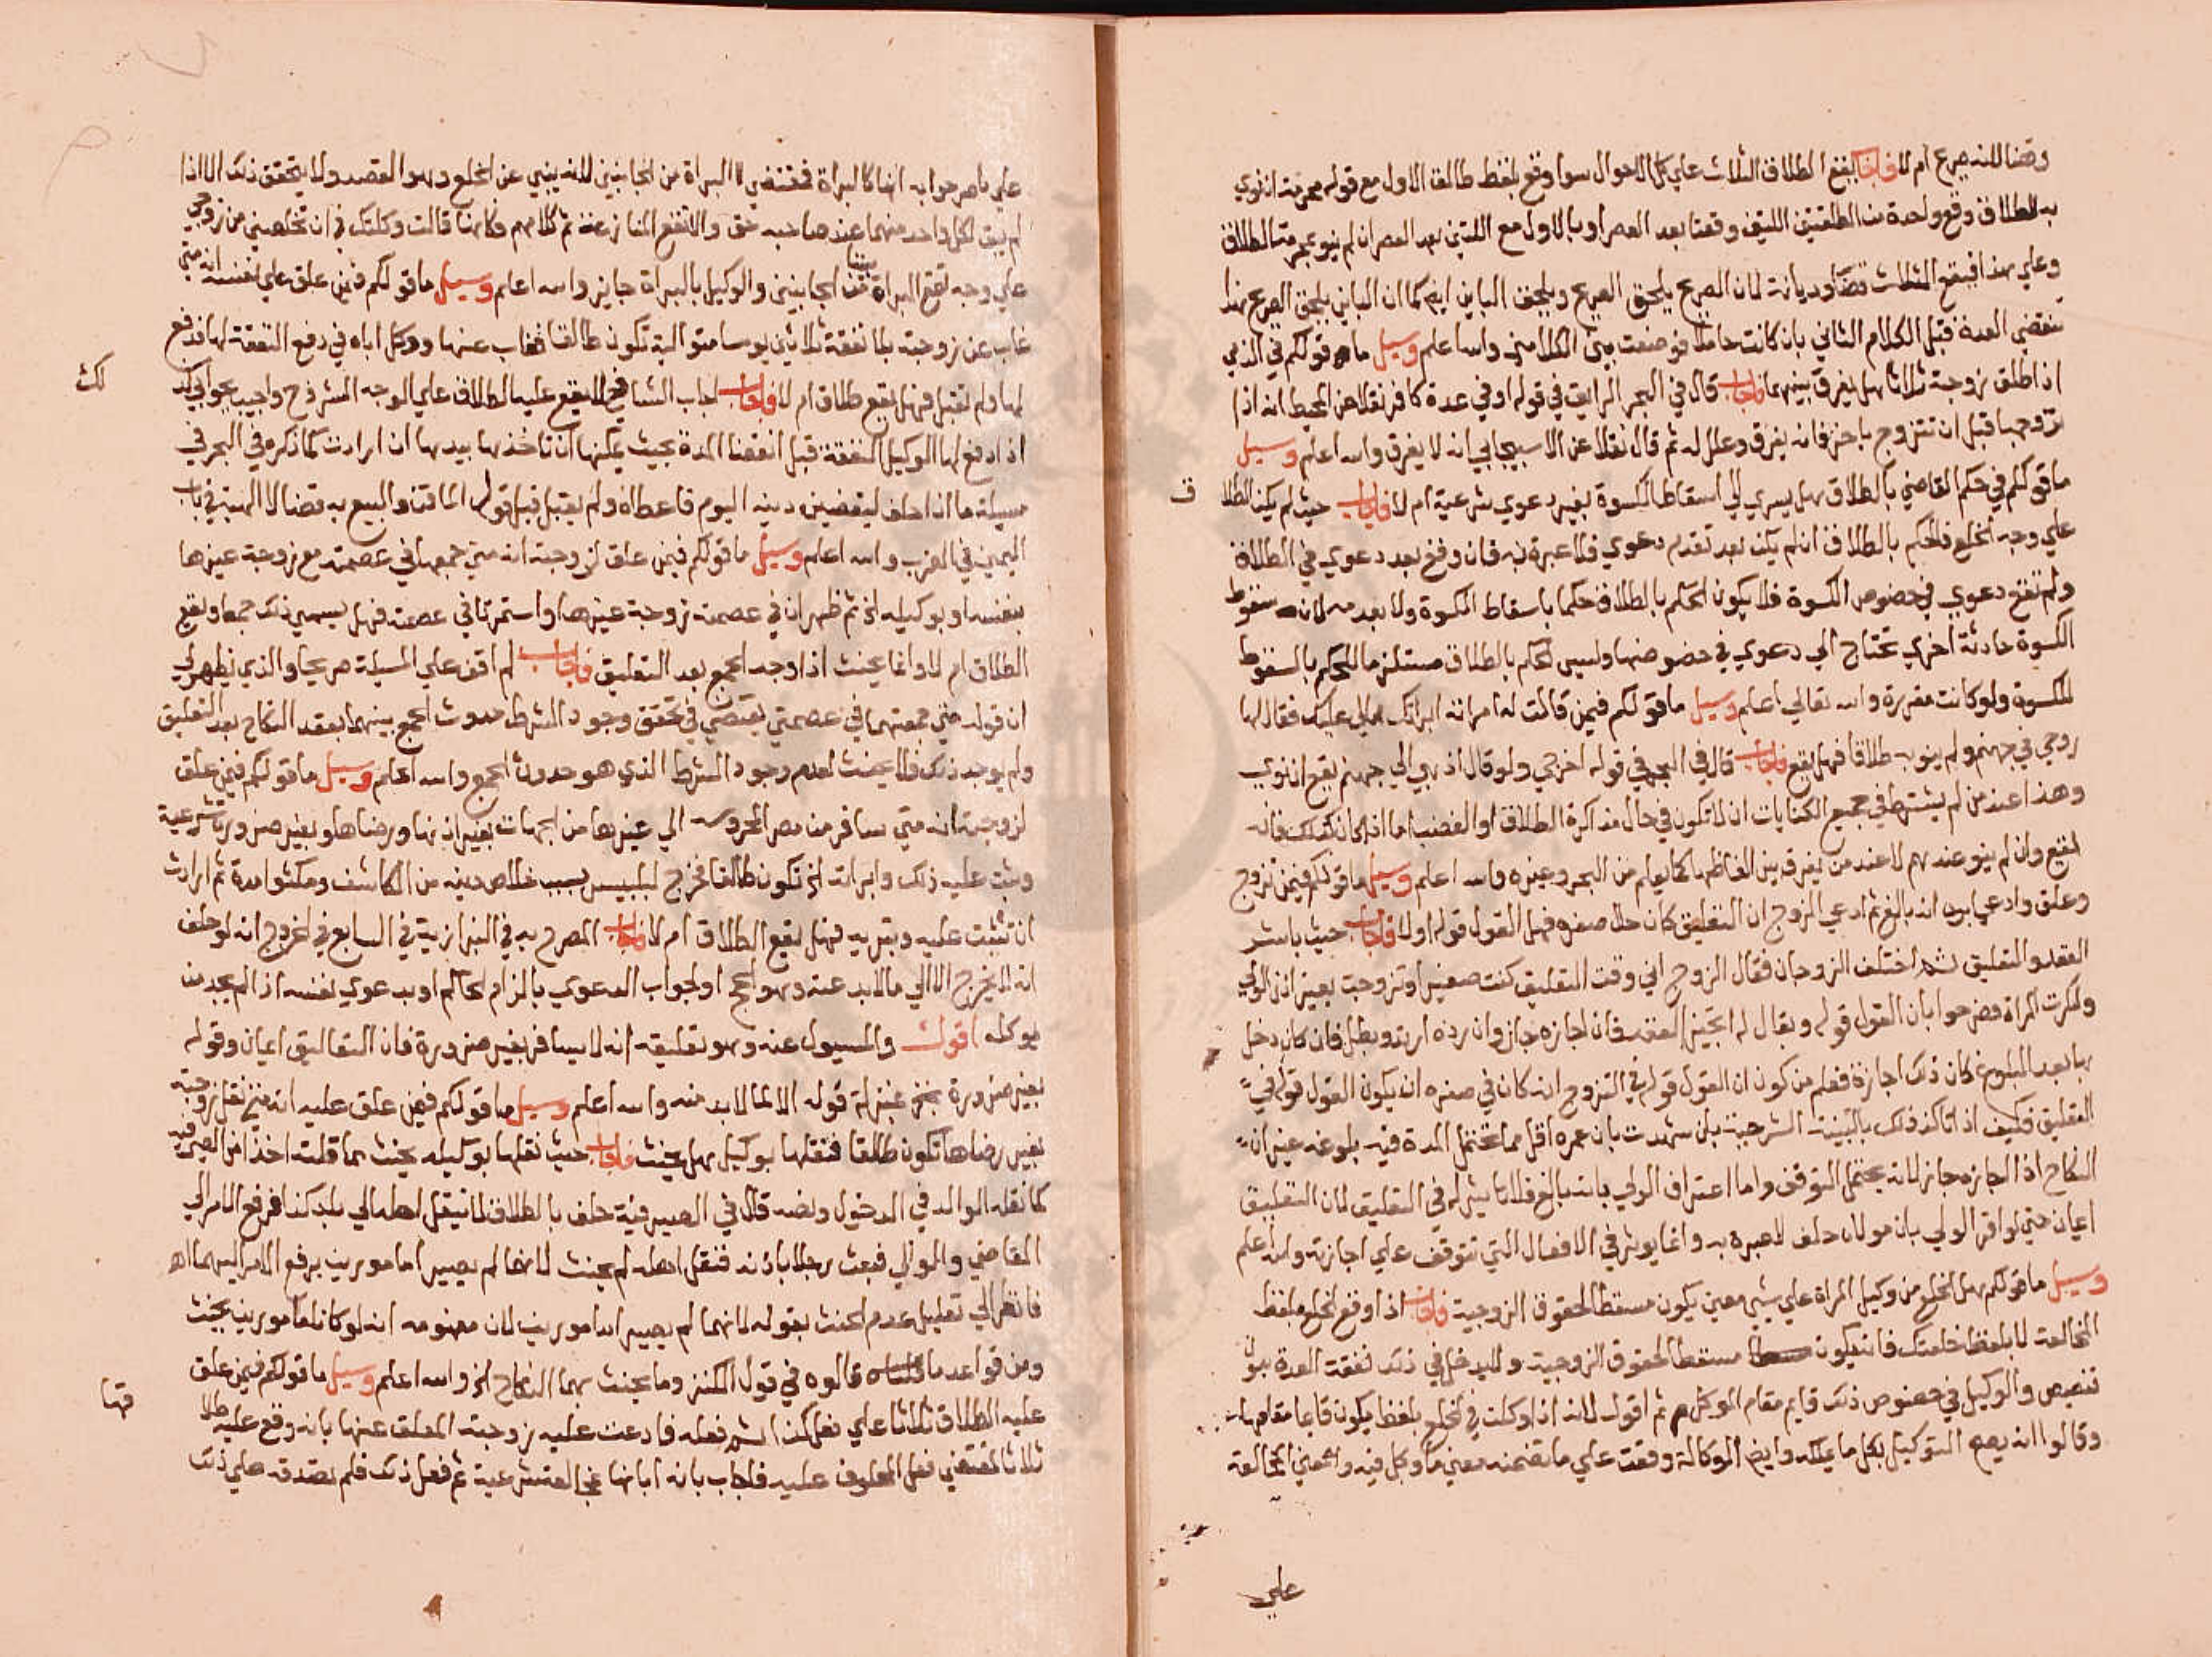 وهنا لانه صريح ام لا فاجاب يقع الطلاق الثلاث علي كل الاحوال سوا وقع بلفظ طالقا الاول مع قوله محرمة ان نوي
به الطلاق وقع واحدة من الطلقتين اللتين وقعتا بعد العصر او بالاول مع اللتين بعد العصر ان لم ينو بمحرمة الطلاق
وعلي هذا فيقع الثلاث قضا وديانة لان الصريح يلحق الصريح ويلحق الباين ايض كما ان الباين يلحق الصريح هذا
تنقضي العدة قبل الكلام الثاني بان كانت حاملا فوضعت بين الكلامين والله اعلم وسيل ما قولكم في الذمي
اذا طلق زوجته ثلاثا هل يفرق بينهما فاجاب قال في البحر الرايق في قوله او في عدة كافر نقلا عن المحيط انه اذا
تزوجها قبل ان تتزوج باخر فانه يفرق وعلل له ثم قال نقلا عن الاسبيجابي انه لا يفرق والله اعلم وسيل
ما قولكم في حكم القاضي بالطلاق هل يسري الي اسقاط الكسوة بغير دعوي شرعية ام لا فاجاب حيث لم يكن الطلا
علي وجه الخلع فالحكم بالطلاق ان لم يكن بعد تقدم دعوي فلا عبرة به فان وقع بعد دعوي في الطلاق
ولم تقع دعوي في خصوص الكسوة فلا يكون الحكم بالطلاق حكما باسقاط الكسوة ولا بعدمه لان سقوط
الكسوة حادثة اخري تحتاج الي دعوي في خصوصها وليس الحكم بالطلاق مستلزما للحكم بالسقوط
للكسوة ولو كانت مقررة والله تعالي اعلم وسيل ما قولكم فيمن قالت له امراته ابراتك مالي عليك فقال لها
روحي في جهنم ولم ينو به طلاقا فهل يقع فاجاب قال في البحر في قوله اخرجي ولو قال اذهبي الي جهنم يقع ان نوي
وهذا عند من لم يشترط في جميع الكنايات ان لا تكون في حال مذاكرة الطلاق او الغضب اما اذا كان كذلك فانه
يقع وان لم ينو عندهم لا عند من يفرق بين الفاظها كما يعلم من البحر وغيره والله اعلم وسيل ما قولكم فيمن تزوج
وعلق وادعي ابوه انه بالغ ثم ادعي الزوج ان التعليق كان حال صغره فهل القول قوله اولا فاجاب حيث باشر
العقد والتعليق ثم اختلف الزوجان فقال الزوج اني وقت التعليق كنت صغيرا وتزوجت بغير اذن الولي
وانكرت المراة فصرحوا بان القول قوله ويقال له اتجيز العقد فان اجازه جاز وان رده ارتد وبطل فان كان دخل
بها بعد البلوغ كان ذلك اجازة فعلم من كون ان القول قوله في التزوج انه كان في صغره ان يكون القول قوله في
التعليق فكيف اذا تاكد ذلك بالبينة الشرعية بان شهدت بان عمره اقل مما تحتمل المدة فيه بلوغه غير ان
النكاح اذا اجازه جاز لانه يحتمل التوقف واما اعتراف الولي بانه بالغ فلا تاثير له في التعليق لان التعليق
اعيان حتي لو اقر الولي بان موليه حلف لا عبرة به وانما يوثر في الافعال التي تتوقف علي اجازته والله اعلم
وسيل ما قولكم هل الخلع من وكيل المراة علي شيي معين يكون مسقطا لحقوق الزوجية فاجاب اذا اوقع الخلع بلفظ
المخالعة لا بلفظ خلعتك فانه يكون مسقطا لحقوق الزوجية ولا يدخل في ذلك نفقة العدة بدون
تنصيص والوكيل في خصوص ذلك قايم مقام الموكل ثم اقول لانه اذا وكلت في الخلع بلفظ يكون قايما مقامها
وقالوا انه يصح التوكيل بكل ما يملكه وايض الوكالة وقعت علي ما يقتضيه معني ما وكل فيه ومعني المخالعة
علي
ف
علي ما صرحوا به انها كالبراة فمقتضي البراة من الجانبين لانه ينبي عن الخلع وهو القصد ولا يتحقق ذلك الا اذا
لم يبق لكل واحد منهما عند صاحبه حق والا تقع المنازعة ثم كلامهم وكانها قالت وكلتك في ان تخلصني من زوجي
علي وجه تقع البراة بيننا من الجانبين والوكيل بالبراة جايز والله اعلم وسيل ما قولكم فيمن علق علي نفسه انه متي
غاب عن زوجته بلا نفقة ثلاثين يوما متوالية تكون طالقا فغاب عنها ووكل اباه في دفع النفقة لها فدفع
لها ولم تقبل فهل يقع طلاق ام لا فاجاب اجاب الشافعي لا يقع عليه الطلاق علي الوجه المشروح واجيب بجوابي كذلك
اذا دفع لها الوكيل النفقة قبل انقضا المدة بحيث يمكنها ان تاخذها بيدها ان ارادت كما ذكره في البحر في
مسيلة ما اذا حلف ليقضين دينه اليوم فاعطاه ولم يقبل قبيل قوله الماتن والبيع به قضا لا الهبة في باب
اليمين في الضرب والله اعلم وسيل ما قولكم فيمن علق لزوجته انه متي جمعها في عصمته مع زوجة غيرها
بنفسه او بوكيله الخ ثم ظهر ان في عصمته زوجة غيرها واستمرتا في عصمته فهل يسمي ذلك جمعا ويقع
الطلاق ام لا وانما يحنث اذا وجد الجمع بعد التعليق فاجاب لم اقف علي المسيلة صريحا والذي يظهر لي
ان قوله متي جمعتهما في عصمتي يقتضي في تحقق وجود الشرط حدوث الجمع بينهما بعقد النكاح بعد التعليق
ولم يوجد ذلك فلا يحنث لعدم وجود الشرط الذي هو حدوث الجمع والله اعلم وسيل ما قولكم فيمن علق
لزوجته انه متي سافر من مصر المحروسه الي غيرها من الجهات بغير اذنها ورضاها او بغير ضرورة شرعية
وثبت عليه ذلك وابرات الخ تكون طالقا فخرج لبلبيس بسبب خلاص دينه من الكاشف ومكثوا مدة ثم ارادت
ان تثبت عليه وتبريه فهل يقع الطلاق ام لا فاجاب المصرح به في البزازية في السابع في الخروج انه لو حلف
انه لا يخرج الا الي ما لا بد عنه وهو الحج او لجواب الدعوي بالزام الحاكم او بدعوي نفسه اذا لم يجد من
يوكله اقول والمسيول عنه وهو تعليقه انه لا يسافر بغير ضرورة فان التعاليق اعيان وقوله
بغير ضرورة بمنزلة قوله الا لما لا بد منه والله اعلم وسيل ما قولكم فيمن علق عليه انه متي نقل زوجته
بغير رضاها تكون طالقا فنقلها بوكيل هل يحنث فاجاب حيث نقلها بوكيله يحنث بما قلته اخذا من الصيرفيه
كما نقله الوالد في الدخول ونصه قال في الصيرفية حلف بالطلاق لا ينقل اهله الي بلد كذا فرفع الامر الي
القاضي والموالي فبعث رجلا باذنه فنقل اهله لم يحنث لانهما لم يصيرا مامورين برفع الامر اليهما اه
فانظر الي تعليل عدم الحنث بقوله لانهما لم يصيرا مامورين لان مفهومه انه لو كانا مامورين يحنث
ومن قواعد ما قالوه في قول الكنز وما يحنث بهما النكاح الخ والله اعلم وسيل ما قولكم فيمن علق
عليه الطلاق ثلاثا علي فعل كذا ثم فعله فادعت عليه زوجته المعلق عنها بانه وقع عليه طلا
ثلاثا لمقتضي فعل المحلوف عليه فاجاب بانه ابانها بمخالعة شرعية ثم فعل ذلك فلم تصدقه علي ذلك